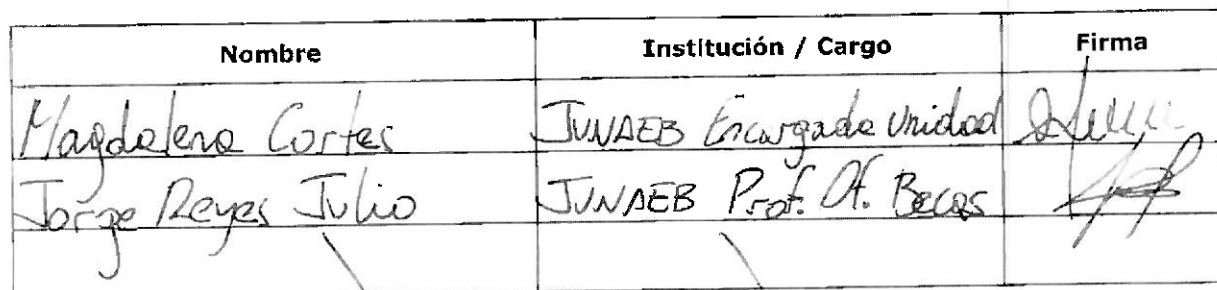 Nombre Institución / Cargo Firma
Magdalena Cortes JUNAEB Encargada Unidad
Jorge Reyes Julio JUNAEB Prof. Of. Becas